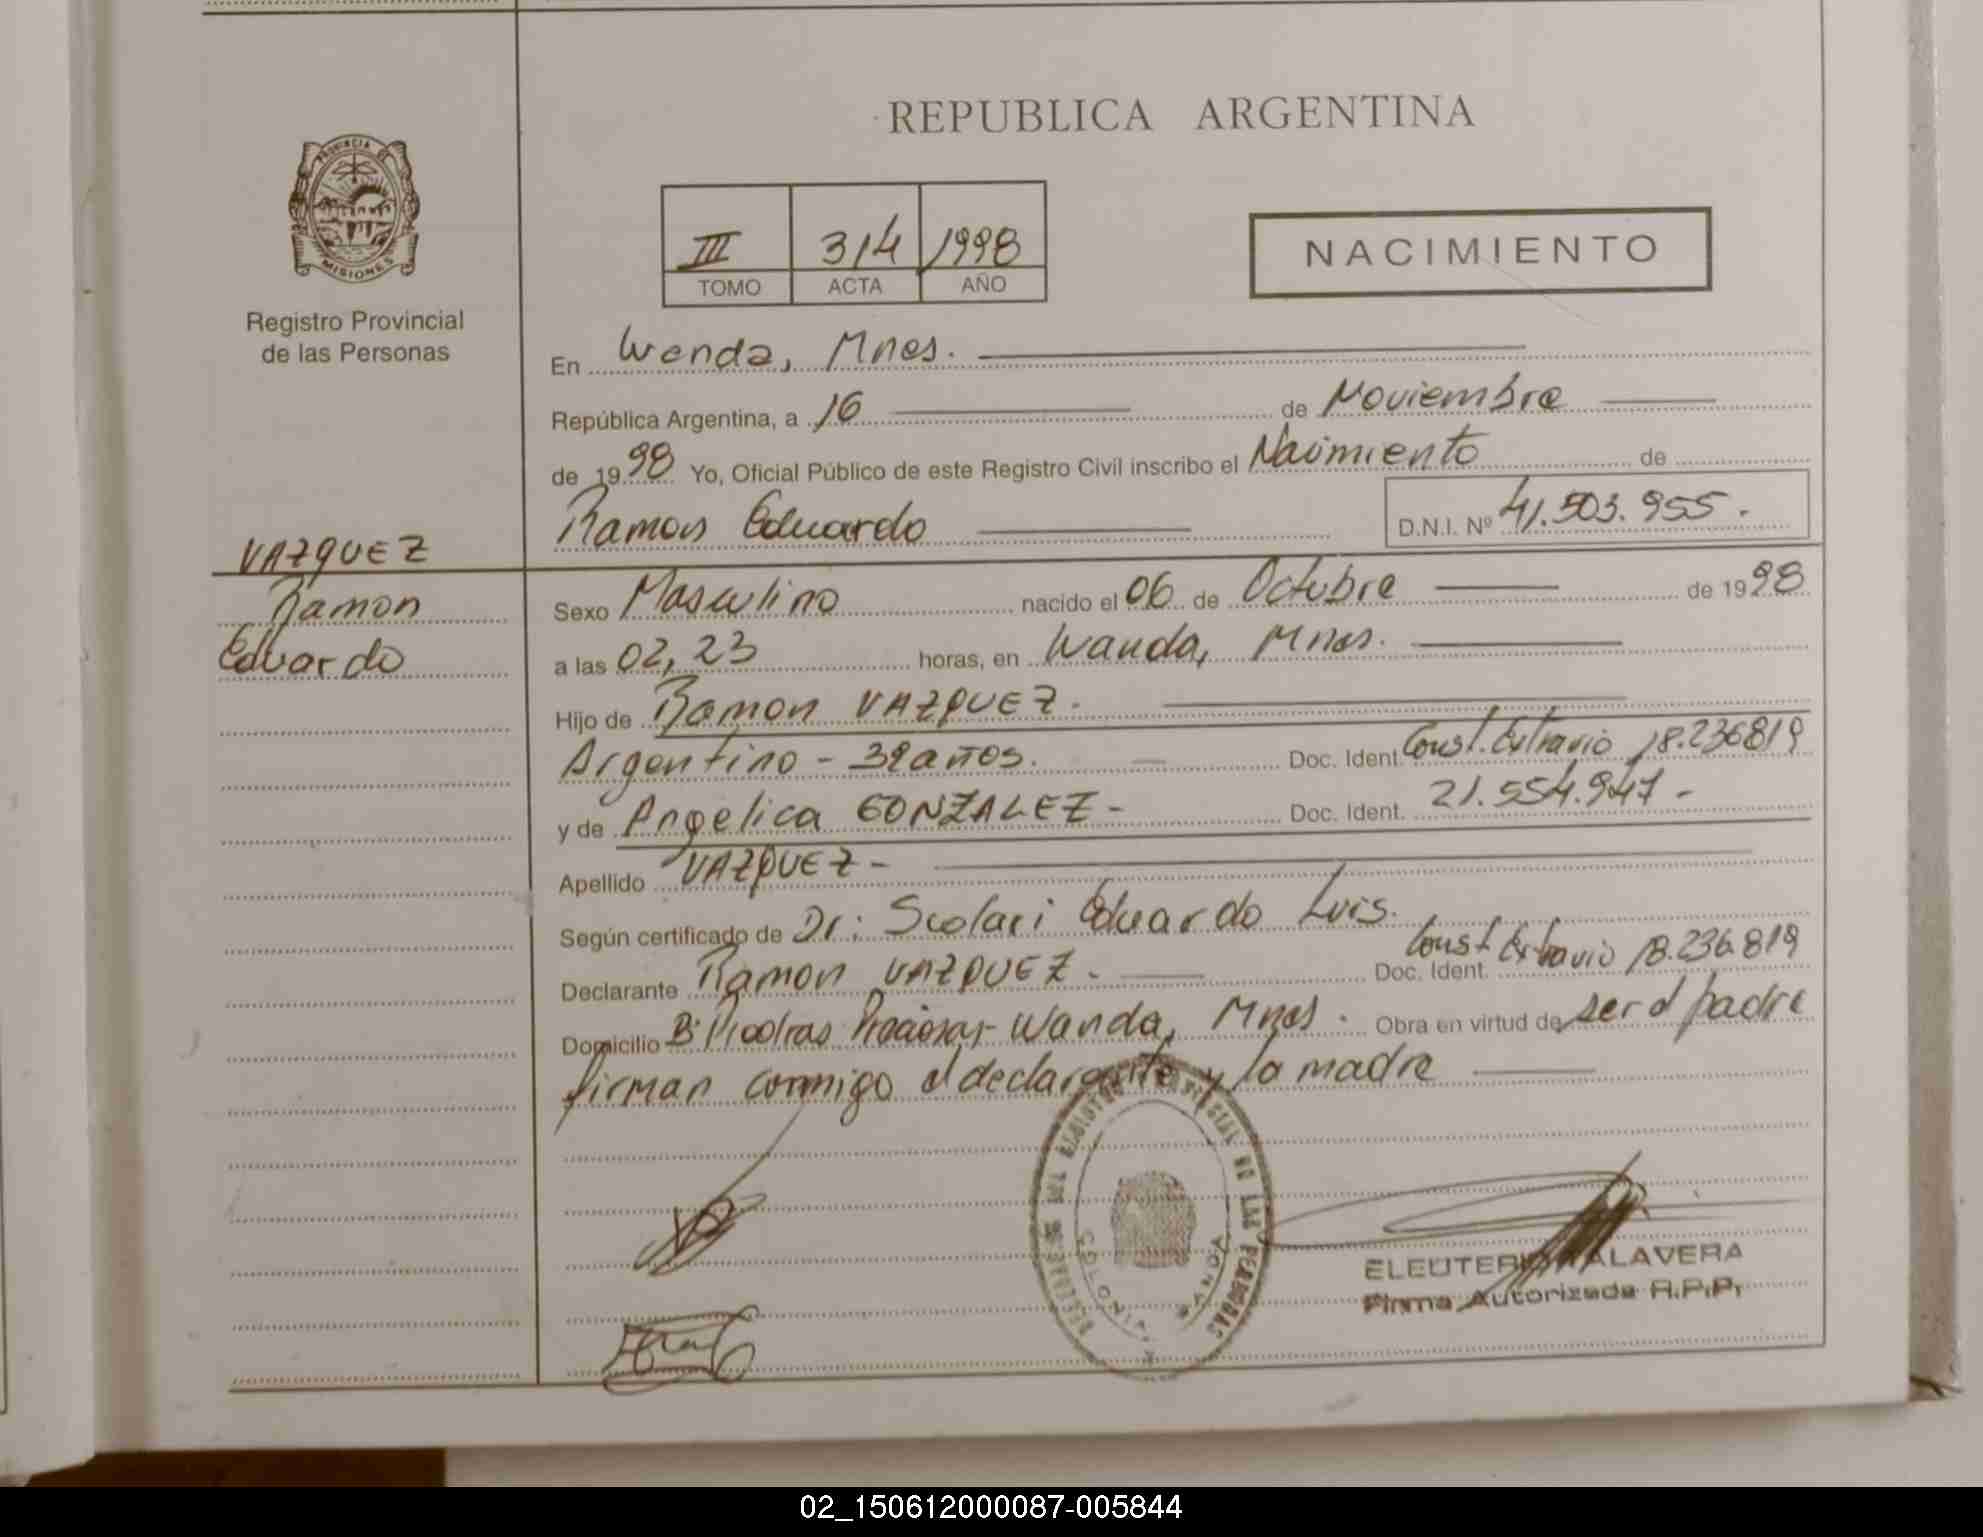 REPUBLICA ARGENTINA
PROVINCIA DE
MISIONES
Registro Provincial
de las Personas
III 314 1998
TOMO ACTA AÑO
NACIMIENTO
En Wanda, Mnes.
República Argentina, a 16 de Noviembre
de 1998 Yo, Oficial Público de este Registro Civil inscribo el Nacimiento de
Ramon Eduardo D.N.I. Nº 41.503.955.
VAZQUEZ
Ramon
Eduardo
Sexo Masculino nacido el 06 de Octubre de 1998
a las 02,23 horas, en Wanda, Mnes.
Hijo de Ramon VAZQUEZ.
Argentino - años. Doc. Ident. Const. Extravio 18.236819
y de Angelica GONZALEZ- Doc. Ident. 21.554.947-
Apellido VAZQUEZ-
Según certificado de Dr: Scolari Eduardo Luis.
Declarante Ramon VAZQUEZ. Doc. Ident. Const Extravio 18.236.819
Domicilio Bº Piedras Preciosas- Wanda, Mnes. Obra en virtud de ser el padre
firman conmigo el declarante y la madre
COLONIA WANDA
ELEUTERIO TALAVERA
Firma Autorizada R.P.P.
02_150612000087-005844